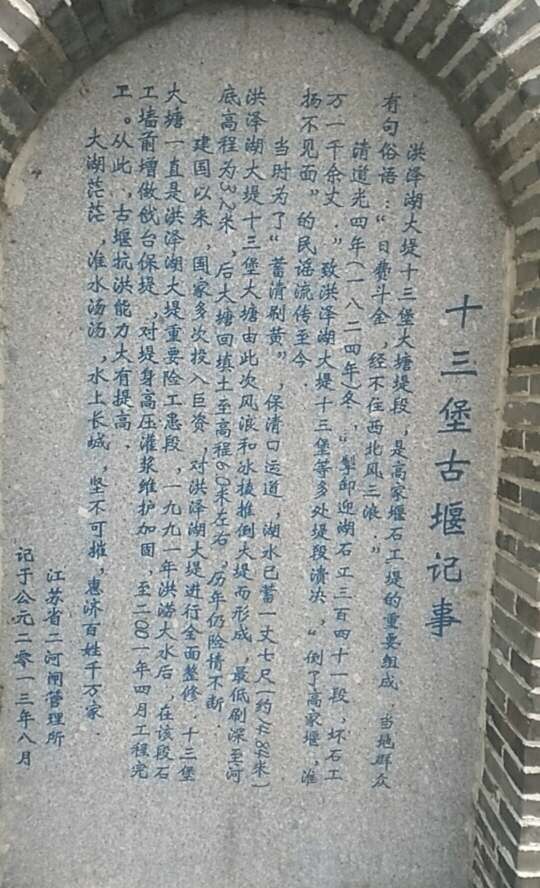 十三堡古堰记事
洪泽湖大堤十三堡大塘堤段，是高家堰石工堤的重要组成．当地群众
有句俗语：“日费斗金，经不住西北风三浪．”
清道光四年（一八二四年）冬，“掣卸迎湖石工三百四十一段，坏石工
万一千余丈．”致洪泽湖大堤十三堡等多处堤段溃决，“倒了高家堰，淮
扬不见面”的民谣流传至今．
当时为了“蓄清刷黄”，保清口运道，湖水已蓄一丈七尺（约14.84米）
洪泽湖大堤十三堡大塘由此次风浪和冰拔推倒大堤而形成，最低刷深至河
底高程为3.2米，后大塘回填土至高程6.0米左右，历年仍险情不断．
建国以来，国家多次投入巨资，对洪泽湖大堤进行全面整修．十三堡
大塘一直是洪泽湖大堤重要险工患段，一九九一年洪涝大水后，在该段石
工墙前增做戗台保堤，对堤身高压灌浆维护加固，至二00一年四月工程完
工。从此，古堰抗洪能力大有提高．
大湖茫茫，淮水汤汤，水上长城，坚不可摧，惠济百姓千万家．
江苏省二河闸管理所
记于公元二零一三年八月